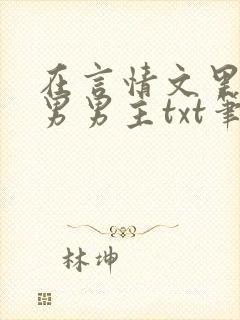 在言情文里
男男主txt笔
林坤